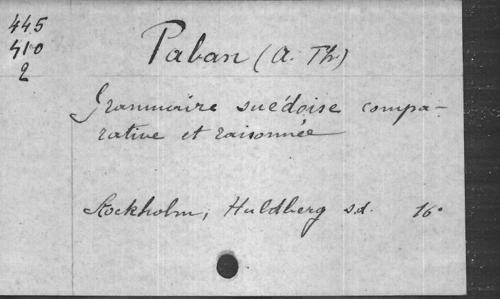 445
410
2
Paban (A. Th)
Grammaire suédoise compa-
rative et raisonnée
Stockholm, Huldberg s.d. 16°